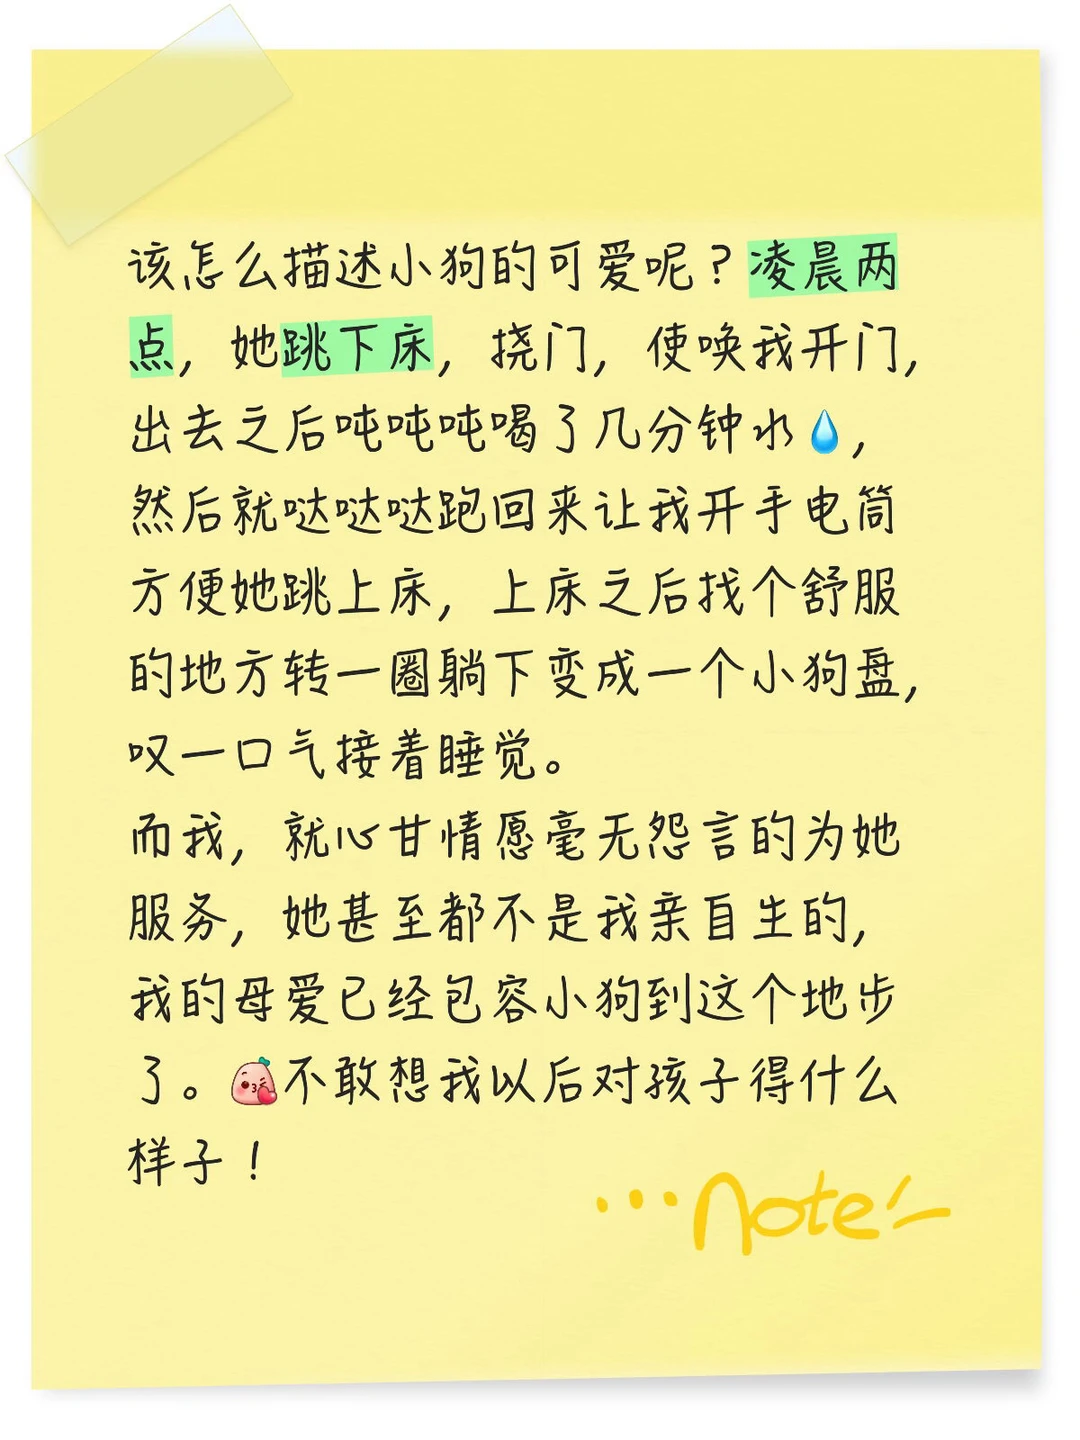 该怎么描述小狗的可爱呢？凌晨两
点，她跳下床，挠门，使唤我开门，
出去之后吨吨吨喝了几分钟水💧，
然后就哒哒哒跑回来让我开手电筒
方便她跳上床，上床之后找个舒服
的地方转一圈躺下变成一个小狗盘，
叹一口气接着睡觉。
而我，就心甘情愿毫无怨言的为她
服务，她甚至都不是我亲自生的，
我的母爱已经包容小狗到这个地步
了。不敢想我以后对孩子得什么
样子！
...note